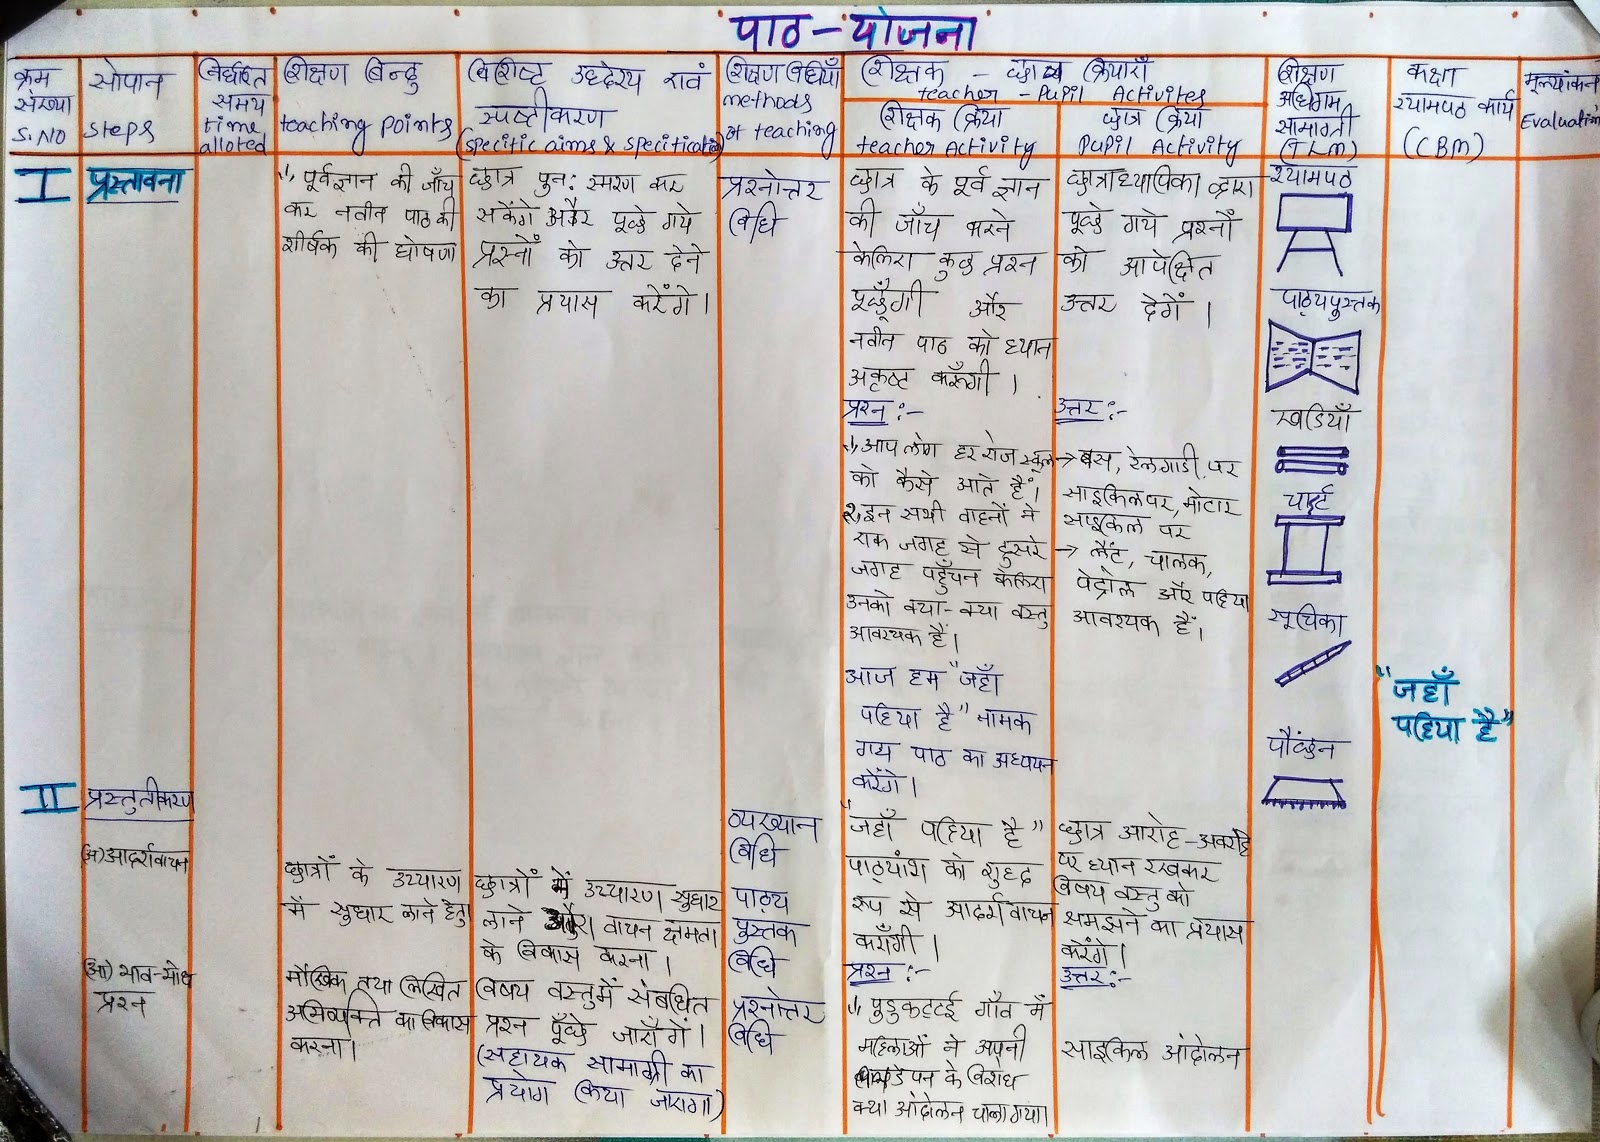 पाठ-योजना
क्रम
संख्या
S.NO
सोपान
Steps
निर्धारित
समय
time
alloted
शिक्षण बिन्दु
teaching points
विशिष्ट उद्देश्य एवं
स्पष्टीकरण
(specific aims & specification)
शिक्षण विधियाँ
methods
of teaching
शिक्षक - छात्र क्रियाएँ
teacher - Pupil Activites
शिक्षक क्रिया
teacher Activity
छात्र क्रिया
Pupil Activity
शिक्षण
अधिगम
सामाग्री
(TLM)
कक्षा
श्यामपठ कार्य
(CBM)
मूल्यांकन
Evaluation
I
प्रस्तावना
1, पूर्वज्ञान की जाँच
कर नवीन पाठ की
शीर्षक की घोषणा
छात्र पुनः स्मरण कर
सकेंगे और पूछे गये
प्रश्नों को उत्तर देने
का प्रयास करेंगे।
प्रश्नोत्तर
विधि
छात्र के पूर्व ज्ञान
की जाँच करने
केलिए कुछ प्रश्न
पूछूँगी और
नवीन पाठ को ध्यान
अकृष्ट करूँगी।
प्रश्न :-
1, आप लोग हर रोज स्कूल
को कैसे आते हैं।
2, इन सभी वाहनों ने
एक जगह से दुसरे
जगह पहुँचन केलिए
उनको क्या-क्या वस्तु
आवश्यक हैं।
आज हम "जहाँ
पहिया है" नामक
गय पाठ का अध्ययन
करेंगे।
छात्राध्यापिका द्वारा
पूछे गये प्रश्नों
को आपेक्षित
उत्तर देगें।
उत्तर :-
→ बस, रेलगाडी पर
साइकिलपर, मोटार
साइकिल पर
→ लैंट, चालक,
पेट्रोल और पहिया
आवश्यक हैं।
श्यामपठ
पाठ्यपुस्तक
खडियाँ
चार्ट
सूचिका
पौंछन
"जहाँ
पहिया है"
II
प्रस्तुतीकरण
(अ) आदर्शवाचन
छात्रों के उच्चारण
में सुधार लाने हेतु
छात्रों में उच्चारण सुधार
लाने और वाचन क्षमता
के विकास करना।
व्यख्यान
विधि
पाठ्य
पुस्तक
विधि
"जहाँ पहिया है"
पाठ्यांश को शुद्द
रूप से आदर्शवाचन
करूँगी।
छात्र आरोह-अवरोह
पर ध्यान रखकर
विषय वस्तु को
समझने का प्रयास
करेंगे।
(आ) भाव-बोध
प्रश्न
मौखिक तथा लिखित
अभिव्यक्ति का विकास
करना।
विषय वस्तुमें संबधित
प्रश्न पूँछे जाएँगे।
(सहायक सामाग्री का
प्रयोग किया जाएगा)
प्रश्नोत्तर
विधि
प्रश्न :-
1, पुडुकट्टई गाँव में
महिलाओं ने अपनी
पन के विरोध
क्या आंदोलन चाला गया।
उत्तर :-
साइकिल आंदोलन